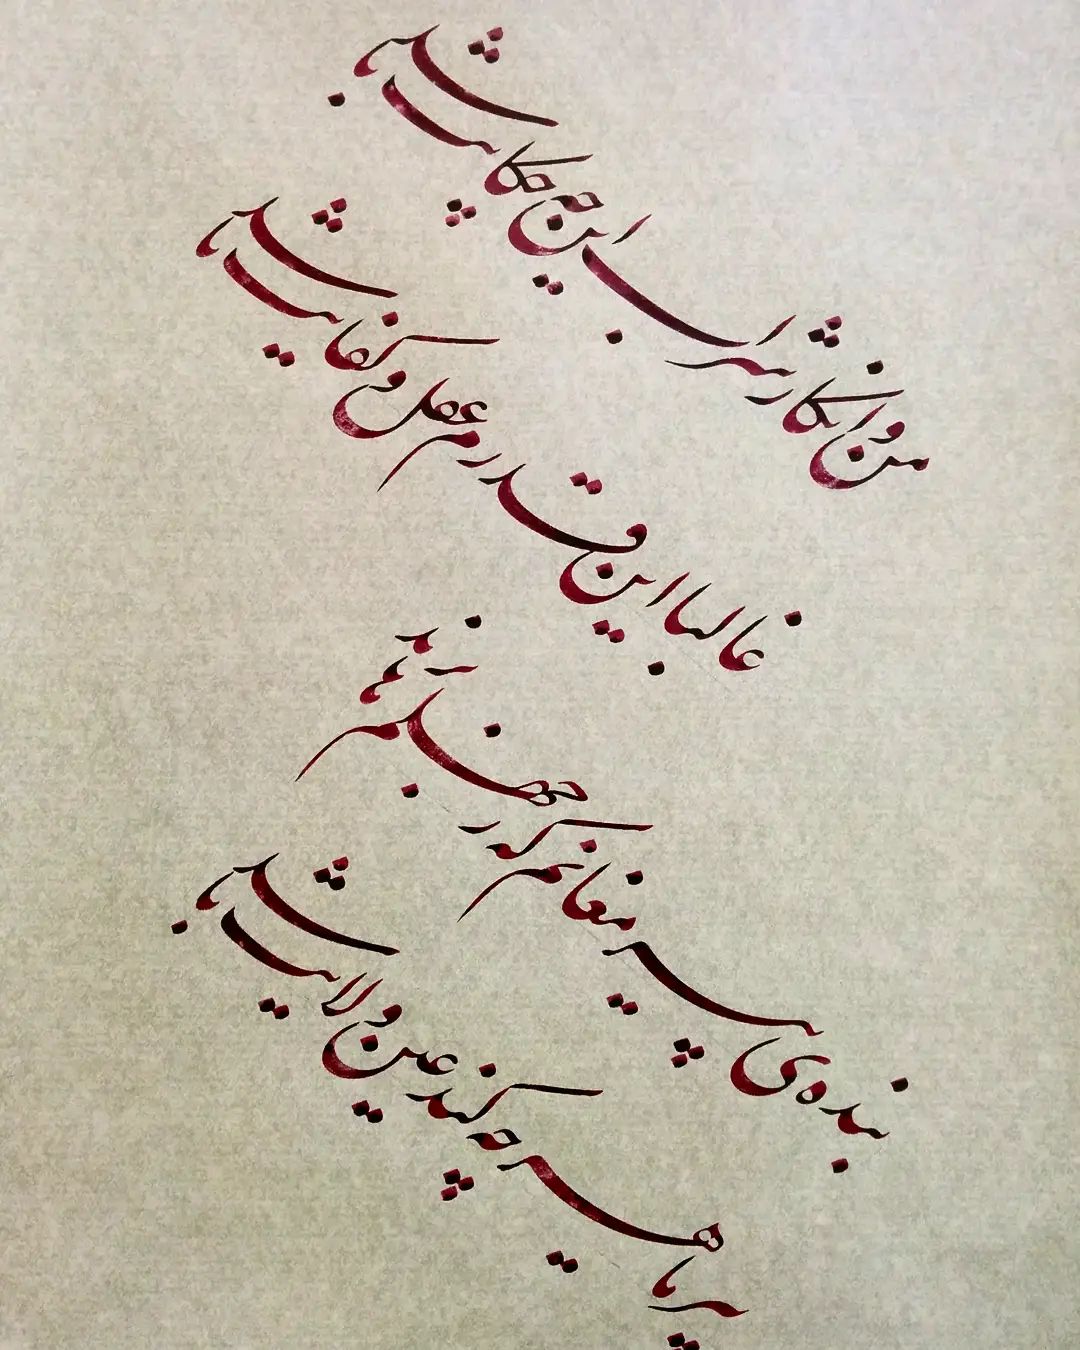 من و انکار شراب این چه حکایت باشد
غالبا این قدرم عقل و کفایت باشد
بنده ی پیر مغانم که ز جهلم برهاند
پیر ما هر چه کند عین ولایت باشد